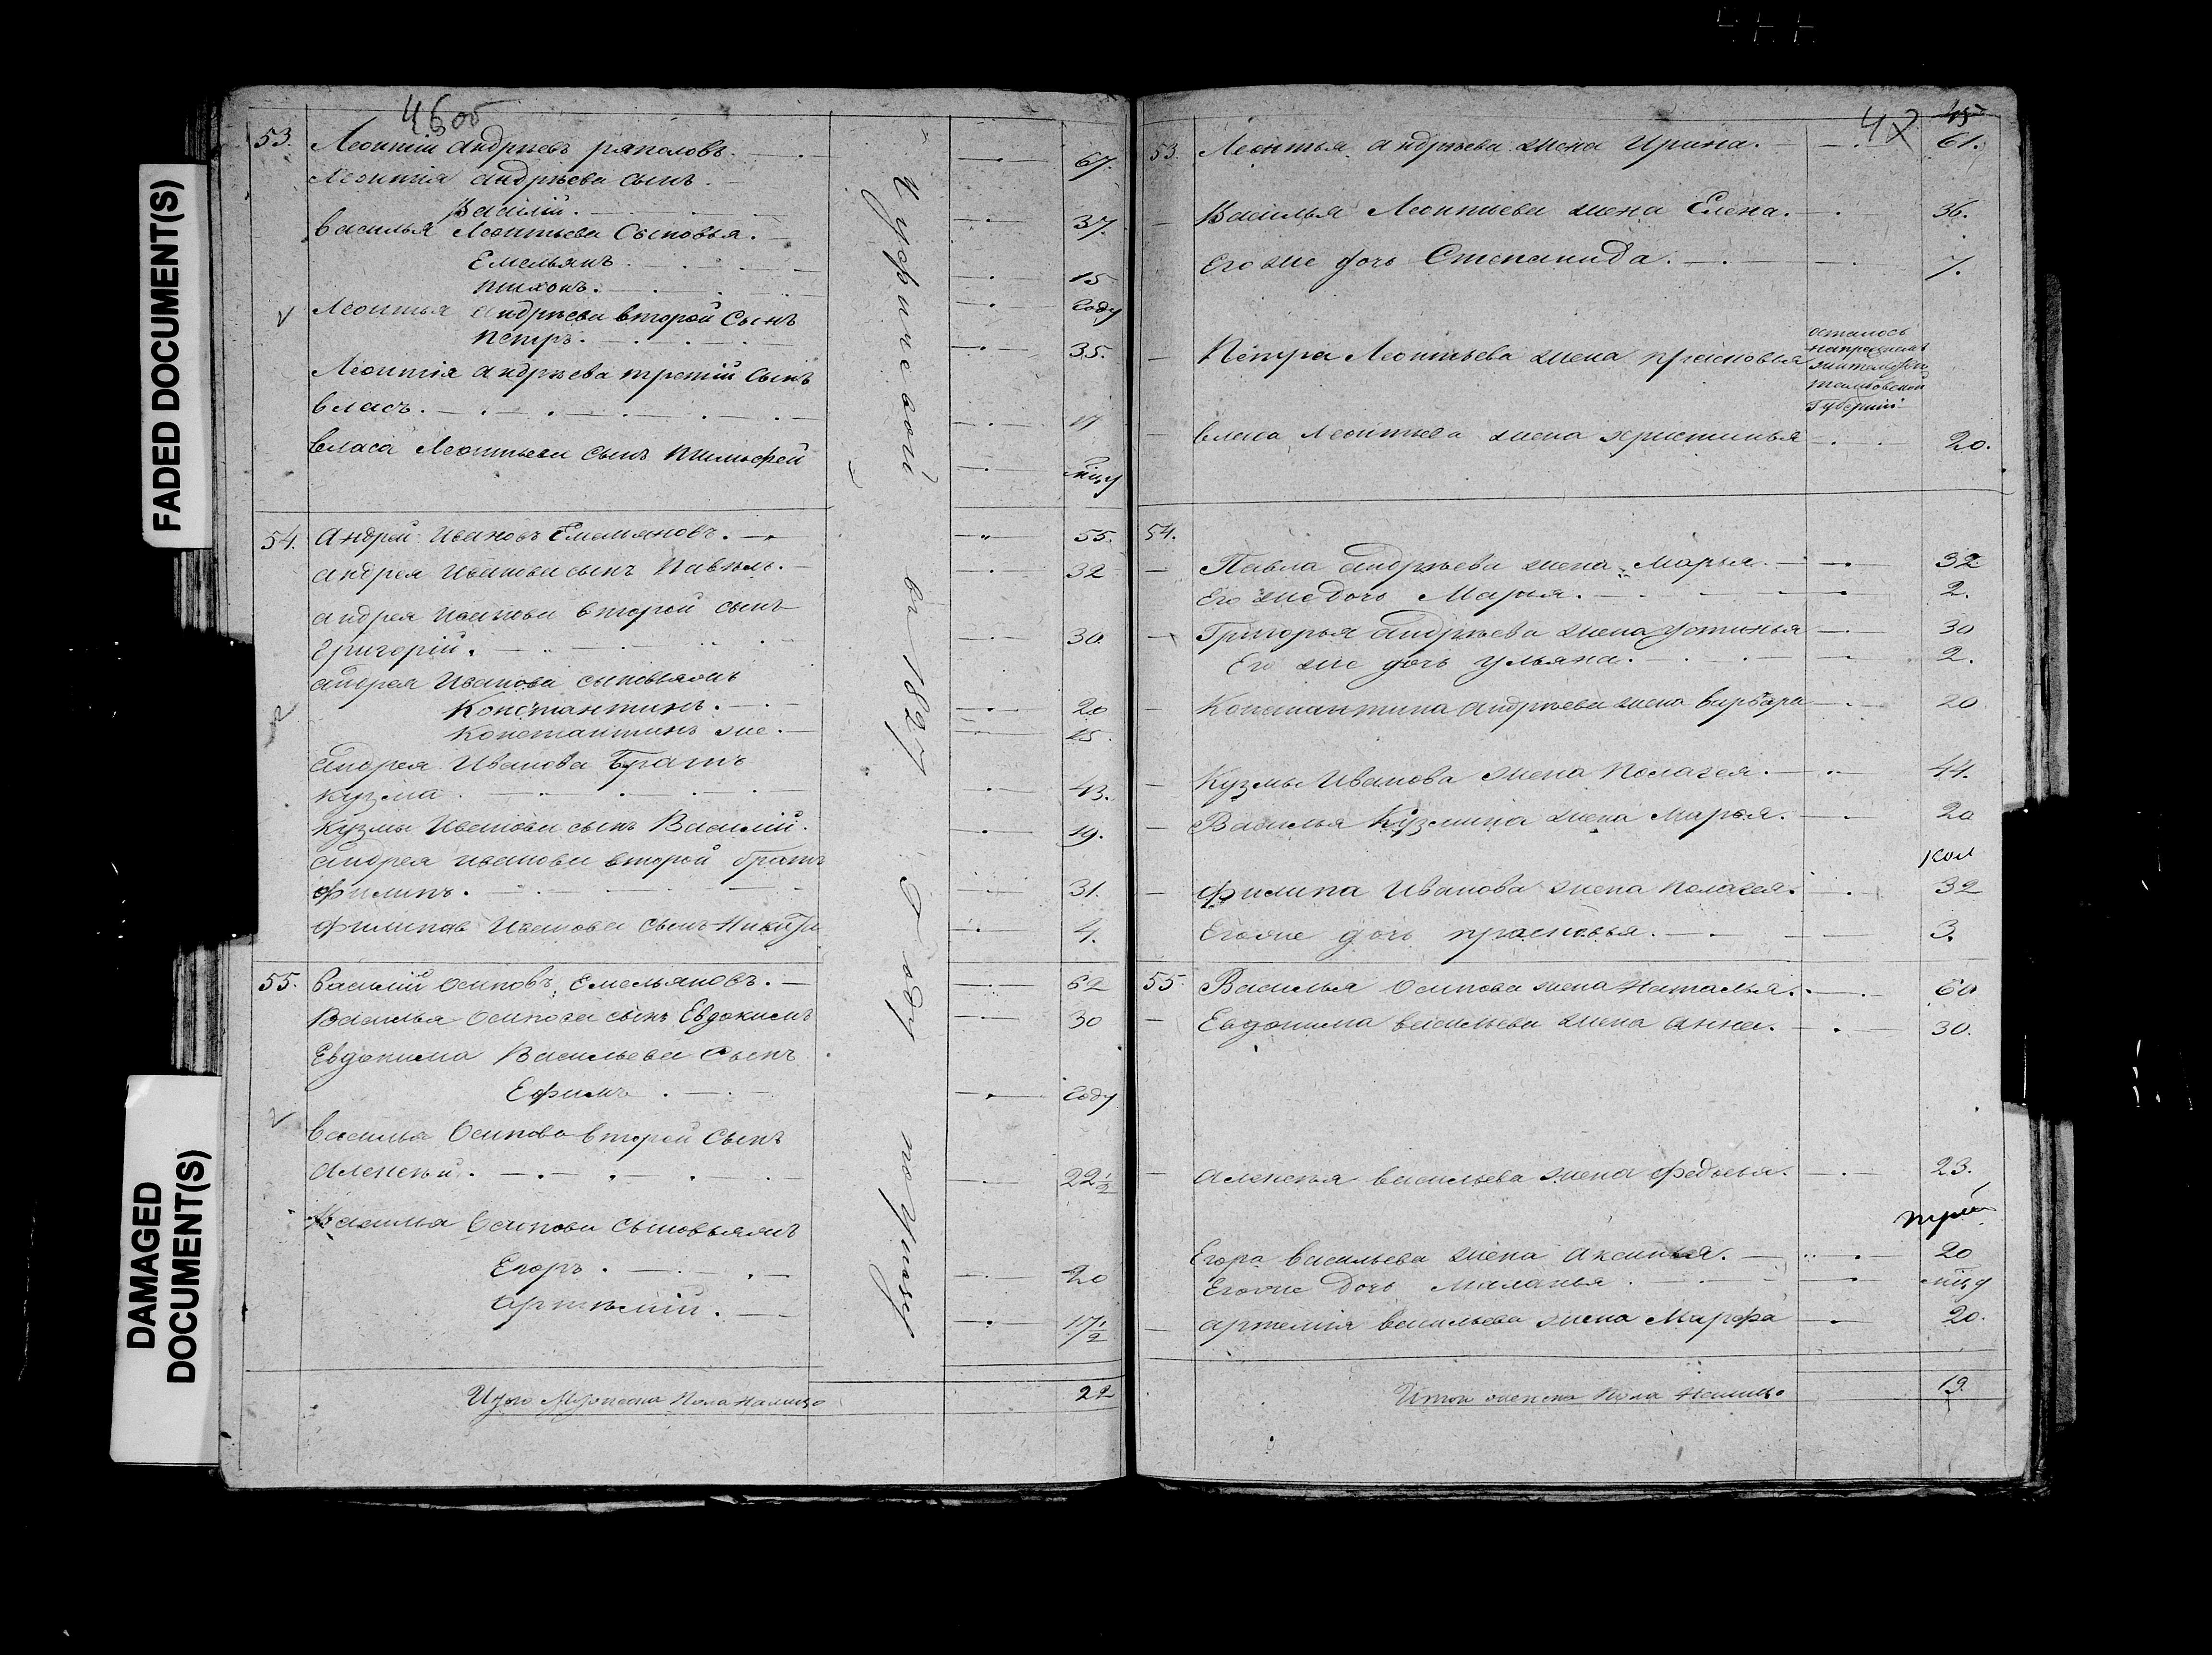 FADED DOCUMENT(S)
DAMAGED
DOCUMENT(S)
46об
53. Леонтій андрѣевъ ряполовъ. 67.
Леонтія андрѣева сынъ.
Василій. 37
василья Леонтьева Сыновья.
Емельянъ 15
тихонъ. году
Леонтья андрѣева второй Сынъ
петръ. 35.
Леонтія андрѣева третій сынъ
власъ. 17
власа Леонтьева сынъ тимофей мцу
54. андрей Ивановъ Емельяновъ. 55.
андрея Иванова сынъ Павелъ. 32
андрея Иванова второй сынъ
григорій. 30
андрея Иванова сыновьямъ
Константинъ. 20
Константинъ же. 15.
андрея Иванова братъ
кузма. 43.
Кузмы Иванова сынъ Василій. 19.
андрея иванова второй братъ
филипъ. 31.
филипа Иванова сынъ Никита 4.
55. василій осиповъ Емельяновъ. 62
Василья осипова сынъ Евдокимъ 30
Евдокима Васильева сынъ
Ефимъ. году
василья Осипова второй сынъ
алексѣй. 22 1/2
Василья осипова сыновьямъ
Егоръ. 20
артемій. 17 1/2
Итого Мужеска Пола налицо 22
в 1827 году
47 45
53. Леонтья андрѣева жена Ирина. 61.
Василья Леонтьева жена Елена. 36.
Его же дочь Степанида. 7.
Петра Леонтьева жена прасковья
осталось
тамбовской
Губерніи
власа Леонтьева жена христинья 20.
54.
Павла андрѣева жена Марья. 32
Его же дочь Марья. 2.
Григорья андрѣева жена устинья 30
Его же дочь ульяна. 2.
Константина андрѣева жена варвара 20
Кузмы Иванова жена Пелагея. 44.
Василья Кузмина жена Марья. 20
филипа Иванова жена пелагея. 32
Егоже дочь прасковья. 3.
55. Василья осипова жена Наталья. 60
Евдокима васильева жена анна. 30.
алексѣя васильева жена федосья. 23.
Егора васильева жена аксинья. 20
Егоже дочь маланья. мцу
артемія васильева жена Марфа 20.
Итого женска Пола налицо 19.